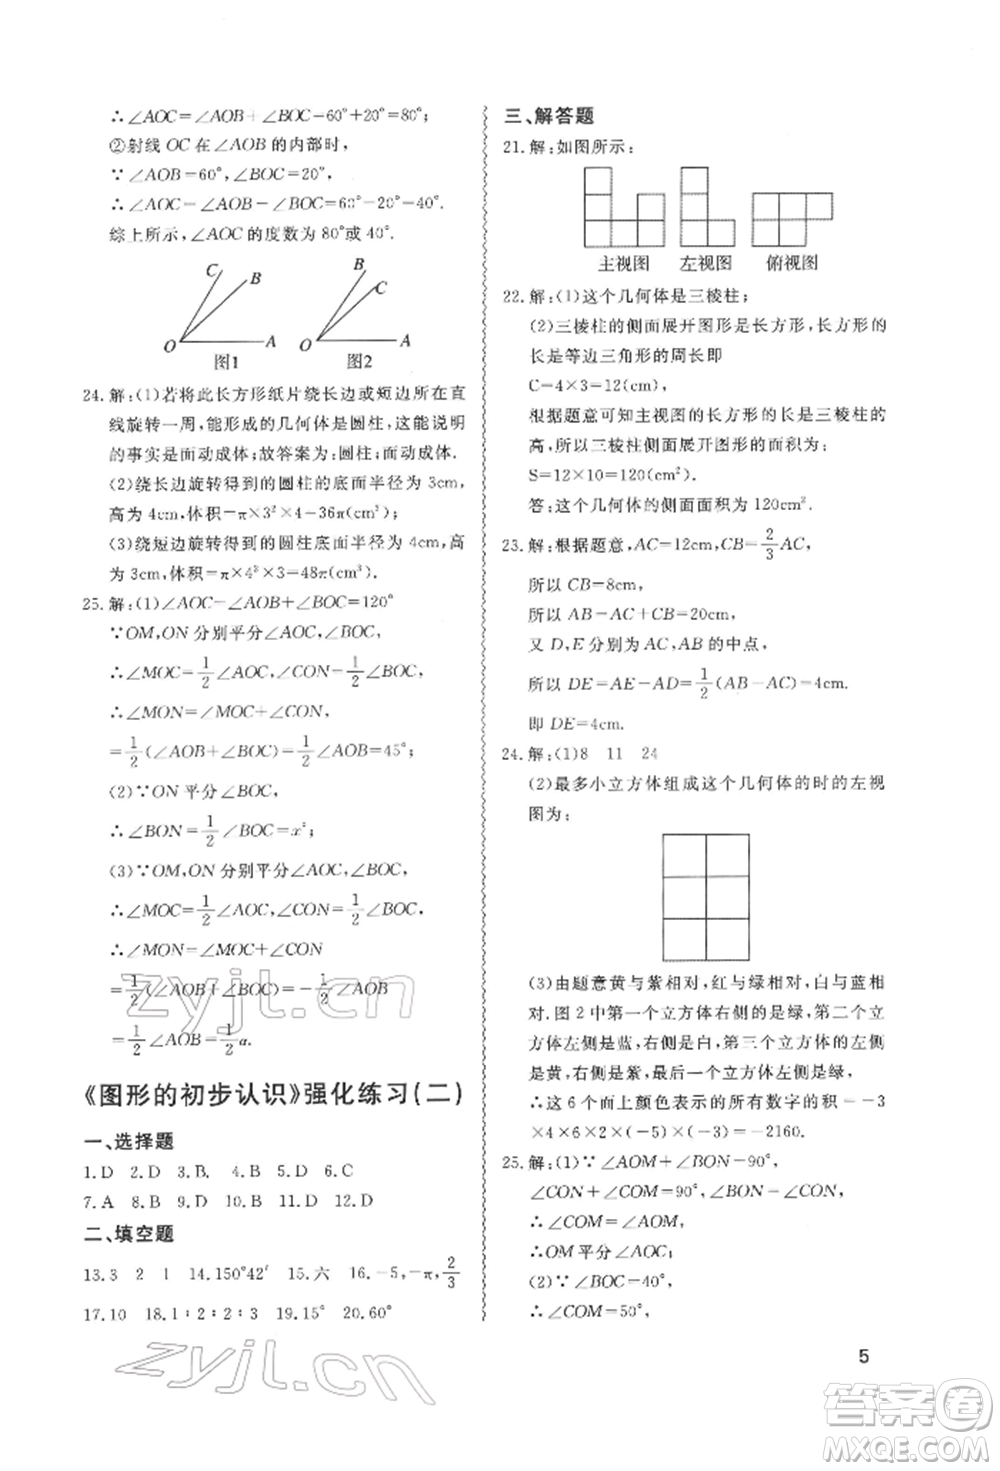 ∴∠AOC=∠AOB+∠BOC-60°+20°=80°;
②射线 OC 在∠AOB 的内部时,
∵∠AOB=60°,∠BOC=20°,
∴∠AOC=∠AOB-∠BOC=60°-20°=40°.
综上所示,∠AOC 的度数为 80°或 40°.
C B O A 图1
B C O A 图2
24.解:(1)若将此长方形纸片绕长边或短边所在直
线旋转一周,能形成的几何体是圆柱,这能说明
的事实是面动成体;故答案为:圆柱;面动成体.
(2)绕长边旋转得到的圆柱的底面半径为 3cm,
高为 4cm,体积=π×3²×4-36π(cm³);
(3)绕短边旋转得到的圆柱底面半径为 4cm,高
为 3cm,体积=π×4²×3=48π(cm³).
25.解:(1)∠AOC-∠AOB+∠BOC=120°
∵OM,ON 分别平分∠AOC,∠BOC,
∴∠MOC=1/2∠AOC,∠CON=1/2∠BOC
∴∠MON=∠MOC+∠CON,
=1/2(∠AOB+∠BOC)=1/2∠AOB=45°;
(2)∵ON 平分∠BOC,
∴∠BON=1/2∠BOC=x°;
(3)∵OM,ON 分别平分∠AOC,∠BOC,
∴∠MOC=1/2∠AOC,∠CON=1/2∠BOC,
∴∠MON=∠MOC+∠CON
=1/2(∠AOB+∠BOC)=1/2∠AOB
=1/2∠AOB=1/2a.
《图形的初步认识》强化练习(二)
一、选择题
1.D 2.D 3.B. 4.B 5.D 6.C
7.A 8.B 9.D 10.B 11.D 12.D
二、填空题
13.3 2 1 14.150°42′ 15.六 16.-5,-π,2/3
17.10 18.1∶2∶2∶3 19.15° 20.60°
zyjl.cn
三、解答题
21.解:如图所示:
主视图 左视图 俯视图
22.解:(1)这个几何体是三棱柱;
(2)三棱柱的侧面展开图形是长方形,长方形的
长是等边三角形的周长即
C=4×3=12(cm)
根据题意可知主视图的长方形的长是三棱柱的
高,所以三棱柱侧面展开图形的面积为:
S=12×10=120(cm²).
答:这个几何体的侧面面积为 120cm².
23.解:根据题意,AC=12cm,CB=2/3AC,
所以 CB=8cm,
所以 AB-AC+CB=20cm,
又 D,E 分别为 AC,AB 的中点,
所以 DE=AE-AD=1/2(AB-AC)=4cm.
即 DE=4cm.
24.解:(1)8 11 24
(2)最多小立方体组成这个几何体的时的左视
图为:
(3)由题意黄与紫相对,红与绿相对,白与蓝相
对.图 2 中第一个立方体右侧的是绿,第二个立
方体左侧是蓝,右侧是红,第三个立方体的左侧
是黄,右侧是紫,最右边的立方体的左侧是绿,
∴这 6 个面上颜色表示的所有数字的积=-3
×4×6×2×(-5)×(-3)=-2160.
25.解:(1)∵∠AOM+∠BON-90°,
∠CON+∠COM=90°,∠BON-∠CON,
∴∠COM=∠AOM,
∴OM 平分∠AOC;
(2)∵∠BOC=40°,
∴∠COM=50°,
5
zyjl.cn
答案圈
MXQE.COM